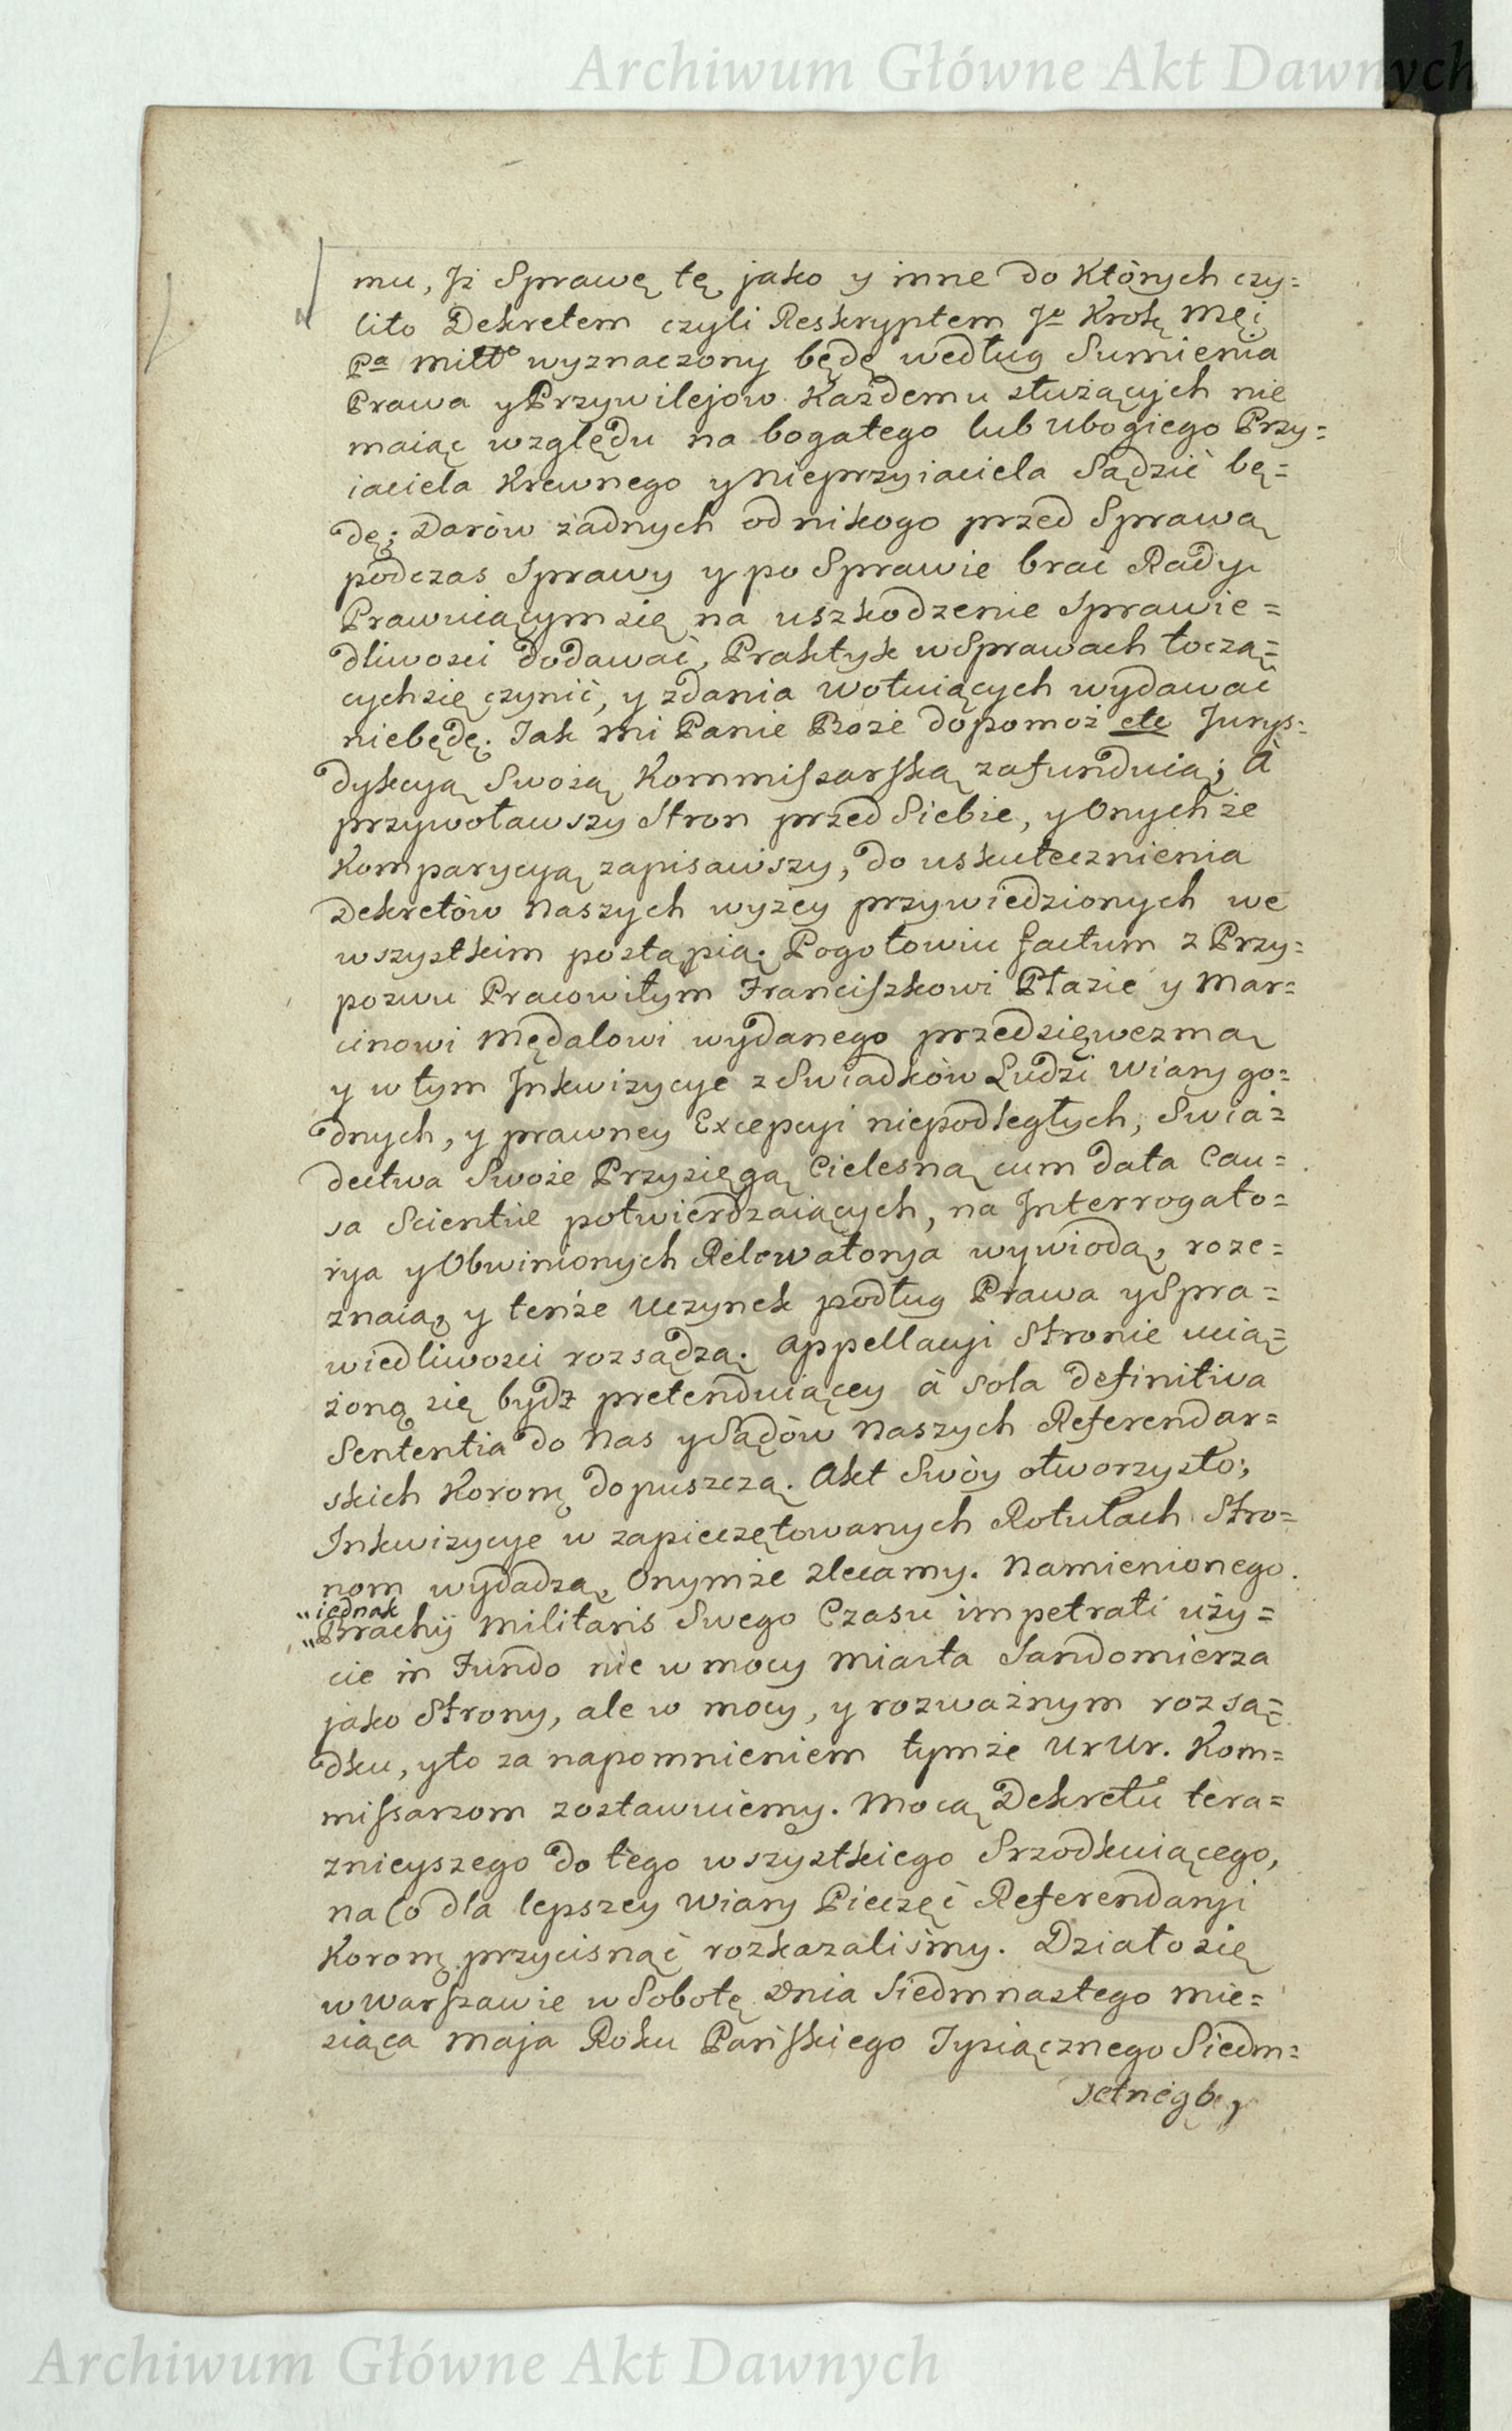 Archiwum Główne Akt Dawnych
mu, Jż Sprawę tę jako y inne do Których czy=
lito Dekretem czyli Reskryptem Je Krolę Męi
Pa Miłło wyznaczony będę według Sumienia
Prawa y Przywilejow Każdemu służących nie
maiąc względu na bogatego lub Ubogiego Przy=
iaciela Krewnego y Nieprzyiaciela Sądzić bę=
dę; Darów żadnych od nikogo przed Sprawą
podczas Sprawy y po Sprawie brać Rady
Prawuiącym się na uszkodzenie Sprawie=
dliwosci dodawać, Praktyk w Sprawach toczą=
cych się czynić, y zdania Wotuiących wydawać
niebędę. Tak mi Panie Boże dopomoż etc Jurys=
dykcyą Swoią Kommissarską zafunduią; A
przywoławszy Stron przed Siebie, y Onychże
Komparycyą zapisawszy, do uskutecznienia
Dekretów Naszych wyżey przywiedzionych we
wszystkim postąpią. Pogotowiu factum z Przy=
pozwu Pracowitym Franciszkowi Płazie y Mar=
cinowi Mędalowi wydanego przedsięwezmą
y w tym Inkwizycye z Swiadków Ludzi Wiary go=
dnych, y prawney Excepcyi niepodległych, Swia=
dectwa Swoie Przysięgą Cielesną cum data Cau=
sa Scientie potwierdzaiących, na Interrogato=
rya y Obwinionych Relewatorya wywiodą, roze=
znaią, y tenże Uczynek podług Prawa y Spra=
wiedliwosci rozsądzą. Appellacyi Stronie ucią=
żoną się bydz pretenduiącey à sola definitiva
Sententia do Nas y Sądów Naszych Referendar=
skich Koronę dopuszczą. Akt Swóy otworzysto;
Inkwizycye w zapieczętowanych Rotułach Stro=
nom wydadzą, Onymże zlecamy. Namienionego
„iednak
„Brachij Militaris Swego Czasu impetrati uży=
cie in Fundo nie w mocy Miasta Sandomierza
jako Strony, ale w mocy, y rozważnym rozsą=
dku, y to za napomnieniem tymże UrUr. Kom=
missarzom zostawuiemy. Mocą Dekretu tera=
znieyszego do tego wszystkiego Srzodkuiącego,
na Co dla lepszey Wiary Pieczęć Referendaryi
Koronę przycisnąć rozkazaliśmy. Działo się
w Warszawie w Sobotę Dnia Siedmnastego Mie=
siąca Maja Roku Pańskiego Tysiącznego Siedm=
setnego,
Archiwum Główne Akt Dawnych